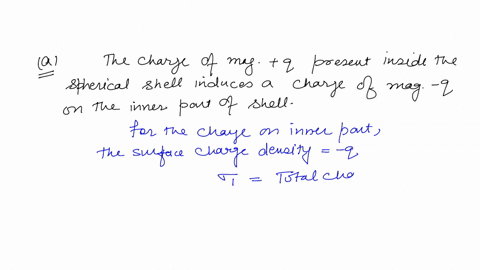 (a) The charge of mag. +q present inside the
spherical shell induces a charge of mag. -q
on the inner part of shell.
For the charge on inner part,
the surface charge density = -q
σ1 = Total cha